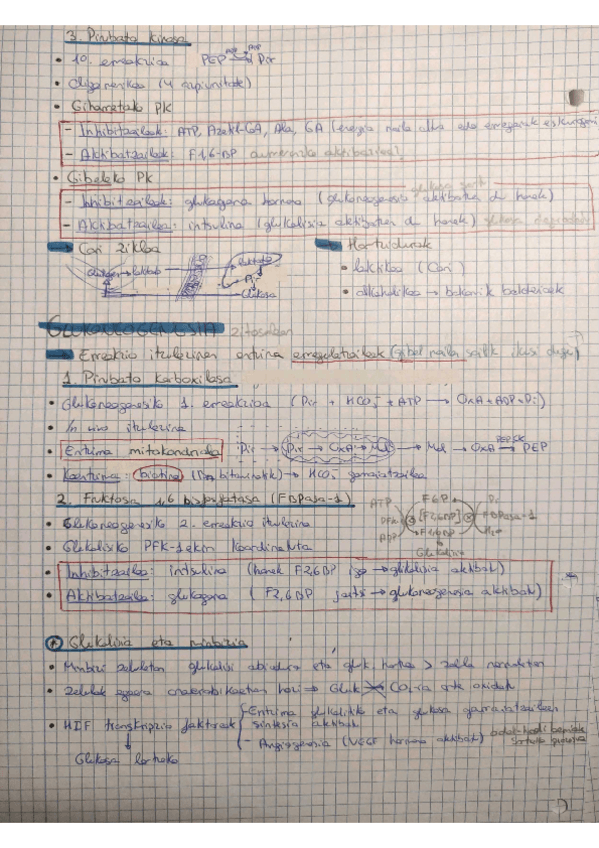 3. Pirubato kinasa
• 10. erreakzioa PEP → Pir
ADP ATP
• Oligomerikoa (4 azpiunitate)
• Giharretako PK
- Inhibitzaileak: ATP, Azetil-CoA, Ala, GA (energia maila altua edo erregaiak eskuragarri
- Aktibatzaileak: F1,6-BP aurrerantza aktibazioa?
• Gibeleko PK
- Inhibitzaileak: glukagona hormona (glukoneogenesia aktibatzen d. honek)
- Aktibatzailea: intsulina (glukolisia aktibatzen d. honek)
→ Cori zikloa
→ Hartzidurak
laktato
laktato
Pir
Glukosa
• laktikoa (Cori)
• alkoholikoa → bakarrik bakterioak
GLUKONEOGENESIA zitosolean
→ Erreakzio itzulezinen entzima erregulatzaileak (gibel maila soilik ikusi dugu)
1. Pirubato karboxilasa
• Glukoneogenesiko 1. erreakzioa (Pir + HCO₃⁻ + ATP → OxA + ADP + Pi)
• In vivo itzulezina
• Entzima mitokondriala Pir → Pir → OxA → Mal → Mal → OxA → PEP
PEPCK
• Koentzima: biotina (B₇ bitaminatik) → HCO₃⁻ garraiatzailea
2. Fruktosa 1,6 bisfosfatasa (FBPasa-1)
• Glukoneogenesiko 2. erreakzio itzulezina
ATP F6P Pi
PFK [F2,6BP] FBPasa-1
ADP F1,6BP H₂O
Glukolisia
• Glukolisiko PFK-1ekin koordinatuta
• Inhibitzailea: intsulina (honek F2,6BP igo → glukolisia aktibatu)
• Aktibatzailea: glukagona (F2,6BP jaitsi → glukoneogenesia aktibatu)
Glukolisia eta minbizia
• Minbizi zeluletan glukolisi abiadura eta gluk. hartzea > zelula normaletan
• Zelulak egoera anaerobikoetan hazi → Gluk CO₂-ra arte oxidatu
• HIF transkripzio faktoreak
- Entzima glukolitiko eta glukosa garraiatzaileen sintesia aktibatu
- Angiogenesia (VEGF hormona aktibatu)
Glukosa lortzeko